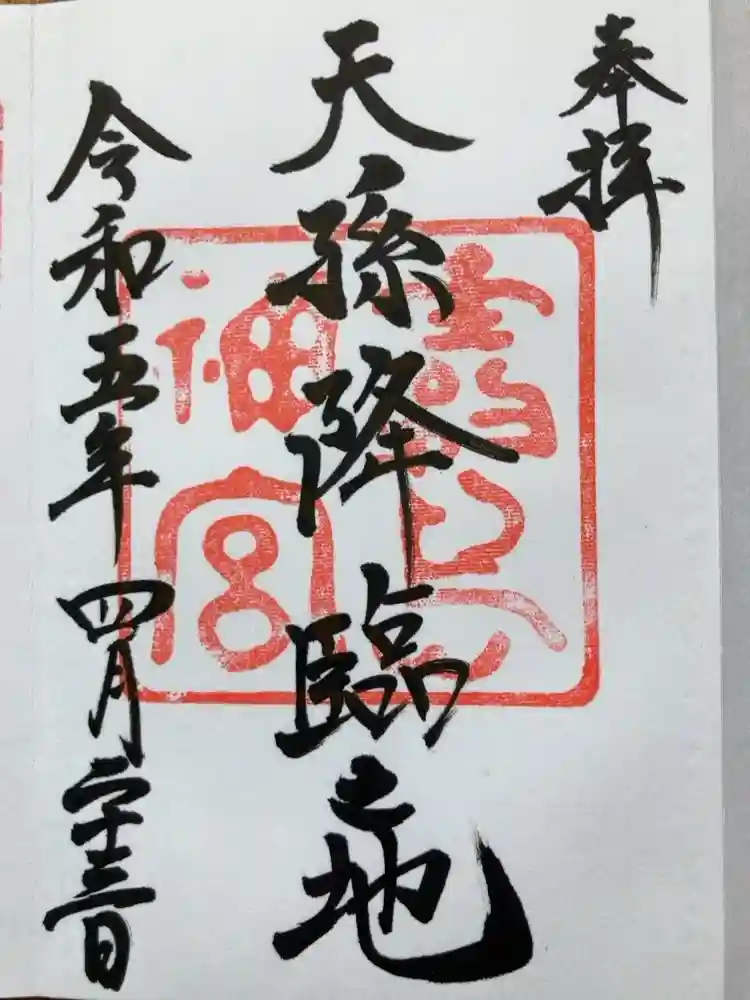 奉拝
天孫降臨之地
令和五年四月二十三日
神宮